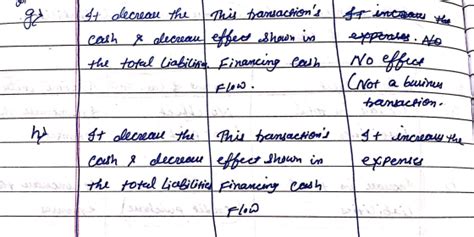 g) It decrease the This transaction's It increases the
cash & decrease effect shown in expenses. No
the total Liabilities Financing Cash No effect
Flow. (Not a business
transaction.
h) It decrease the This transaction's It increase the
Cash & decrease effect shown in expenses
the total Liabilities Financing Cash
Flow